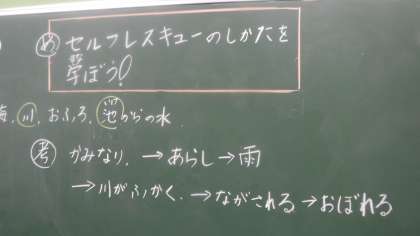 め セルフレスキューのしかたを
学ぼう!
海、川、おふろ、池からの水
考 かみなり、→あらし→雨
→川がふかく、→ながされる→おぼれる